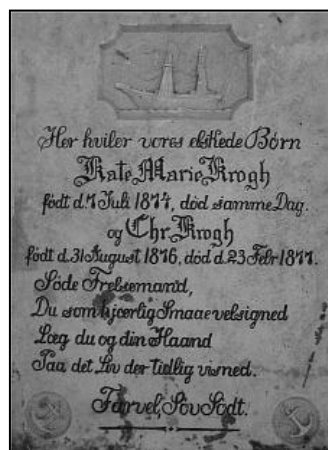 Her hviler vores elskede Børn
Kate Marie Krogh
født d. 7 Juli 1874, død samme Dag.
og Chr. Krogh
født d. 31 August 1876, død d. 23 Febr 1877.
Söde Frelsemand,
Du som kjærlig Smaae velsigned
Læg du og din Haand
Paa det Liv der tidlig visned.
Farvel, Söv Södt.